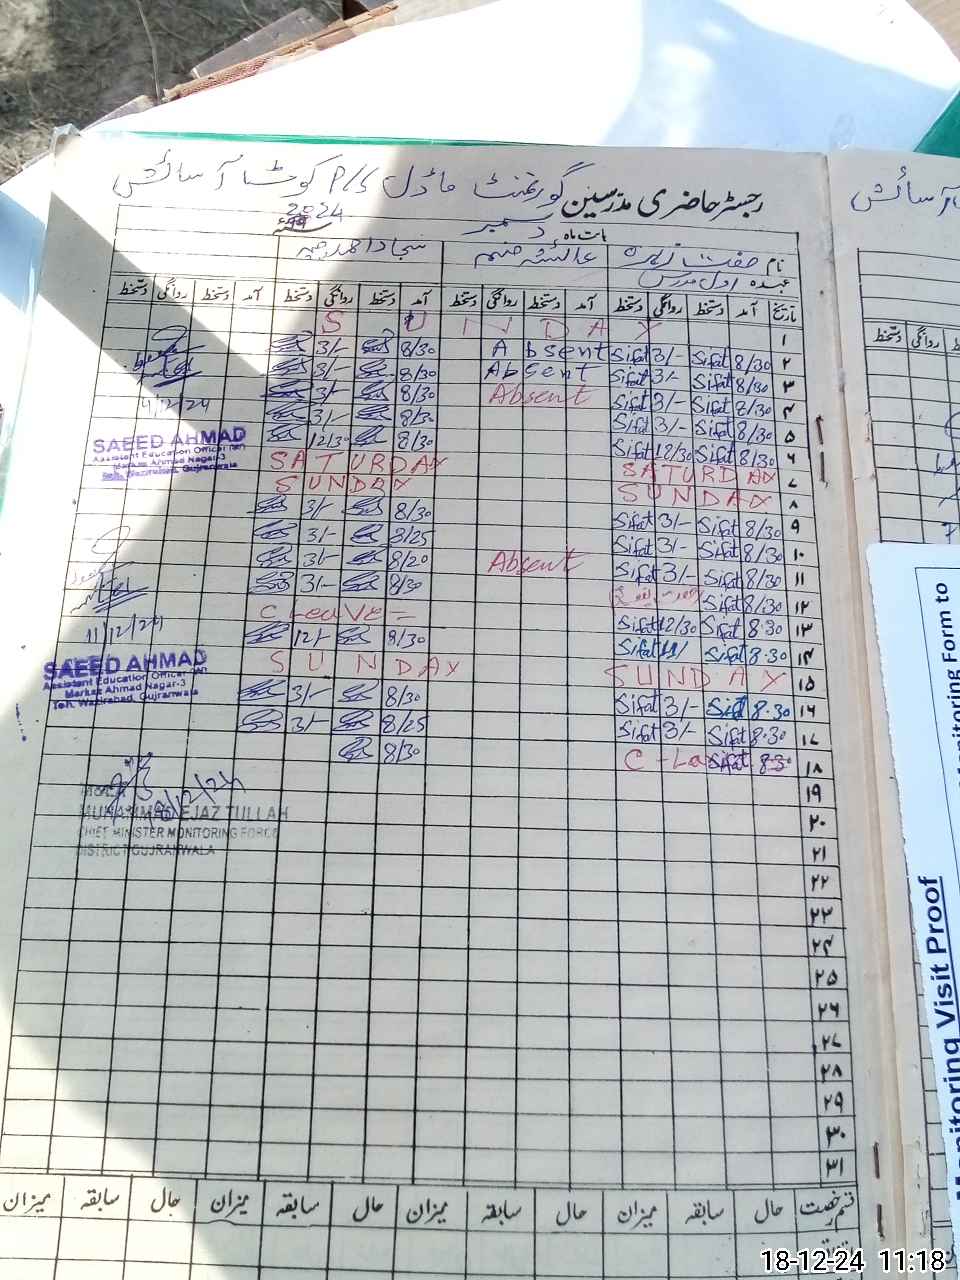 گورنمنٹ ماڈل P/S کوٹ آسائش
رجسٹر حاضری مدرسین
2024
بابت ماہ دسمبر
نام صفت زہرہ عائشہ صنم سجاد احمد
عہدہ اول مدرس
تاریخ آمد دستخط روانگی دستخط آمد دستخط روانگی دستخط آمد دستخط روانگی دستخط آمد دستخط روانگی دستخط
۱ S U N D A Y
۲ 8/30 Sifat 3/- Sifat Absent 8/30 3/-
۳ 8/30 Sifat 3/- Sifat Absent 8/30 3/-
۴ 8/30 Sifat 3/- Sifat Absent 8/30 3/-
4/12/24
۵ 8/30 Sifat 3/- Sifat 8/30 3/-
۶ 8/30 Sifat 12/30 Sifat 8/30 12/30
SAEED AHMAD
Assistant Education Officer
Markaz Ahmad Nagar-3
Teh. Wazirabad, Gujranwala
۷ SATURDAY SATURDAY
۸ SUNDAY SUNDAY
۹ 8/30 Sifat 3/- Sifat 8/30 3/-
۱۰ 8/30 Sifat 3/- Sifat 8/25 3/-
۱۱ 8/30 Sifat 3/- Sifat Absent 8/20 3/-
۱۲ 8/30 Sifat 8/30 3/-
11/12/24
۱۳ 8.30 Sifat 12/30 Sifat C Leave
۱۴ 8.30 Sifat Sifat 8/30 12/-
SAEED AHMAD
Assistant Education Officer
Markaz Ahmad Nagar-3
Teh. Wazirabad, Gujranwala
۱۵ SUNDAY SUNDAY
۱۶ 8.30 Sifat 3/- Sifat 8/30 3/-
۱۷ 8.30 Sifat 3/- Sifat 8/25 3/-
۱۸ 8.30 Sifat 8/30
18/12/24
MUHAMMAD EJAZ TULLAH
CHIEF MINISTER MONITORING FORCE
DISTRICT GUJRANWALA
۱۹
۲۰
۲۱
۲۲
۲۳
۲۴
۲۵
۲۶
۲۷
۲۸
۲۹
۳۰
۳۱
قسم رخصت حال سابقہ میزان حال سابقہ میزان حال سابقہ میزان حال سابقہ میزان
آسائش
روانگی دستخط
Monitoring Form to
Monitoring Visit Proof
18-12-24 11:18